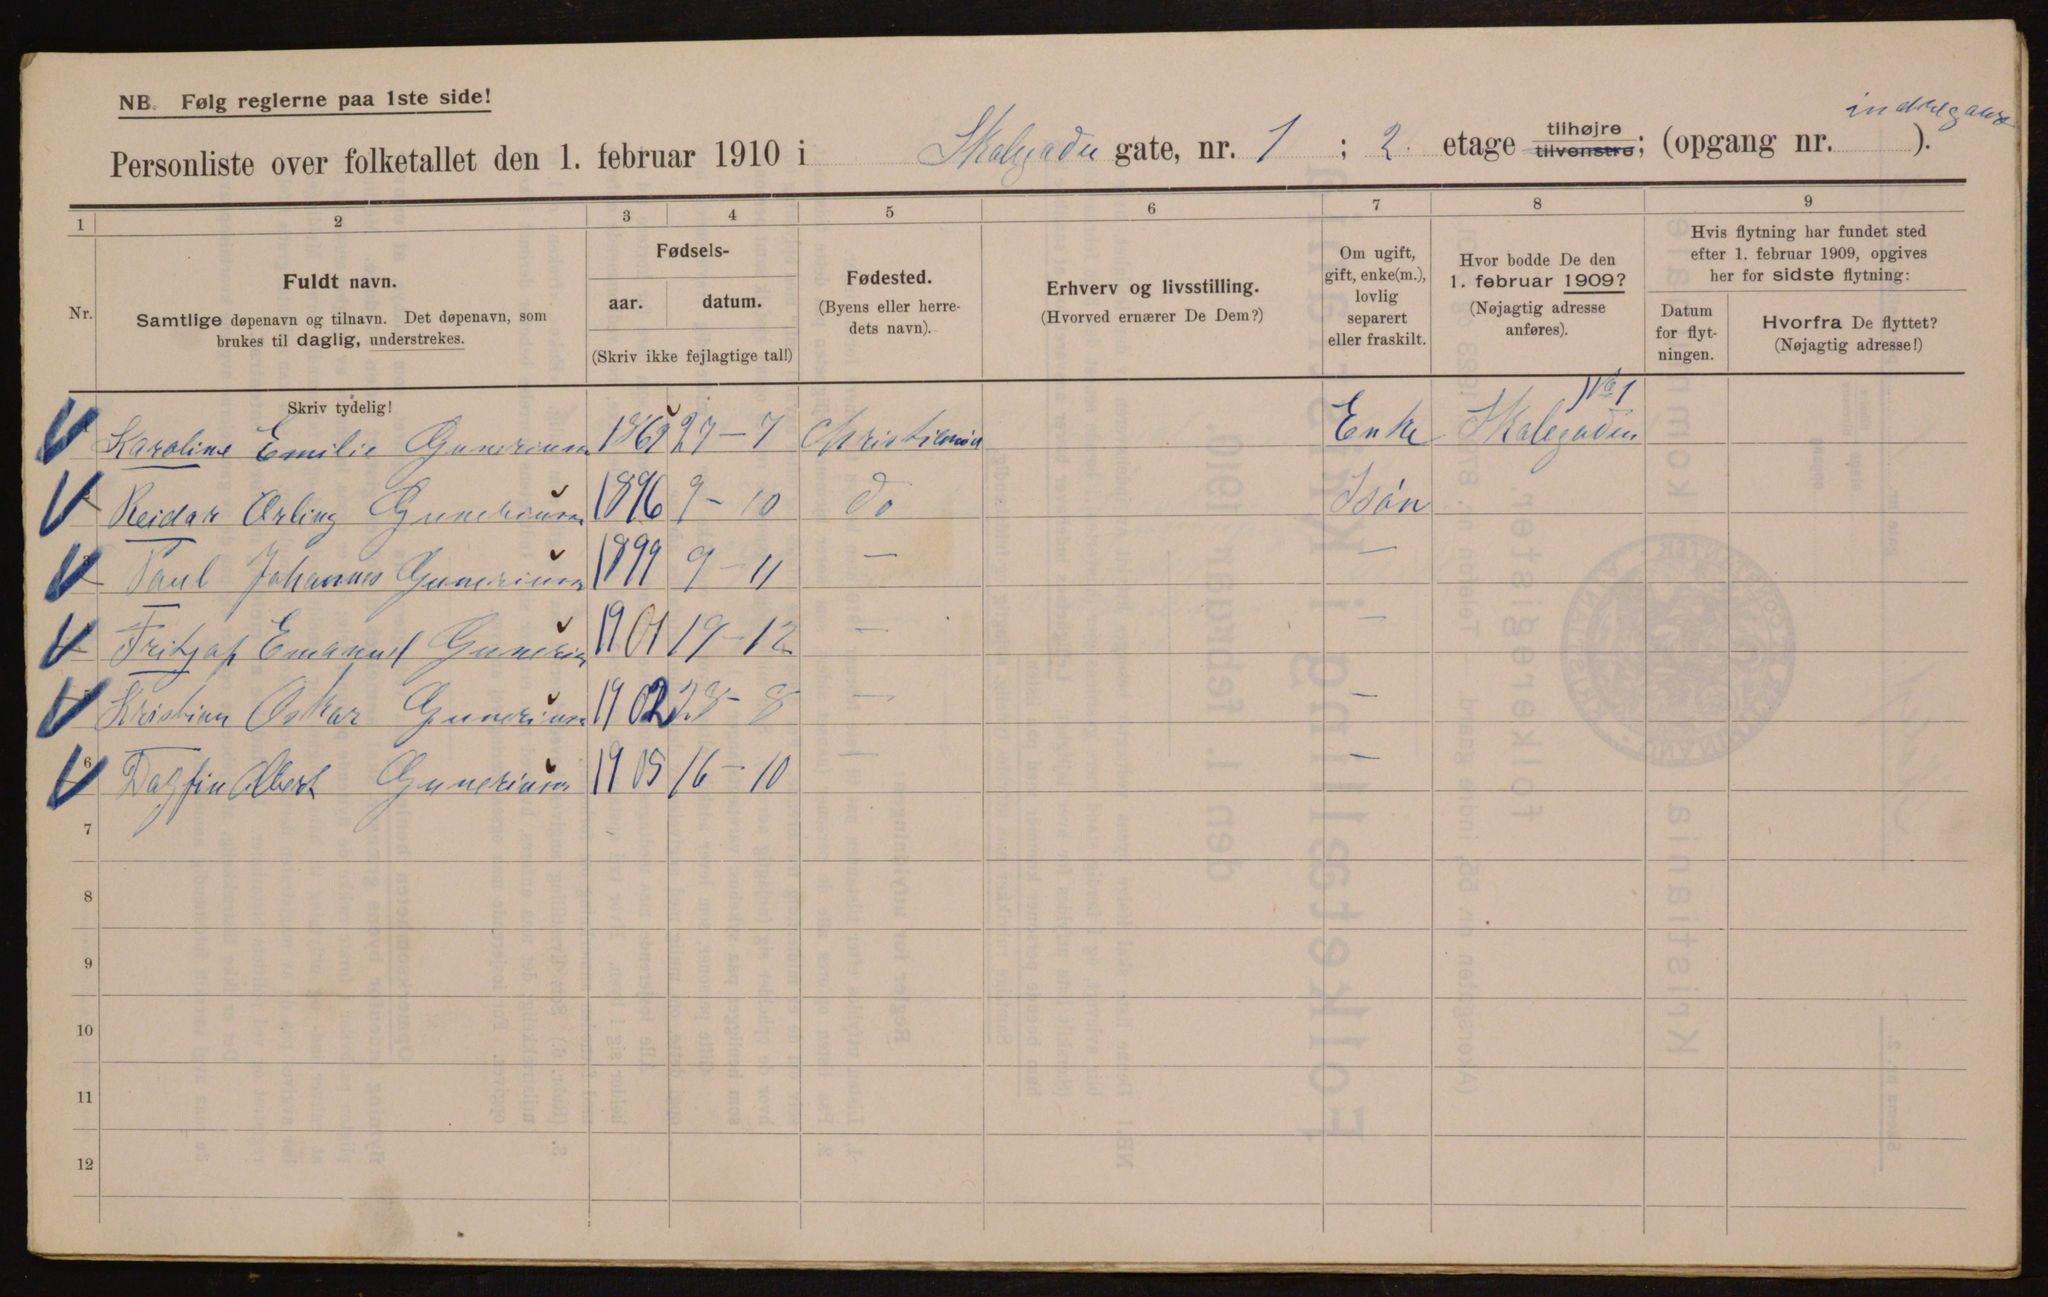 NB. Følg reglerne paa 1ste side!
Personliste over folketallet den 1. februar 1910 i Skolegaden gate, nr. 1 ; 2. etage tilhøjre tilvenstre; (opgang nr. ).
1 2 3 4 5 6 7 8 9
Nr.
Fuldt navn.
Samtlige døpenavn og tilnavn. Det døpenavn, som
brukes til daglig, understrekes.
Skriv tydelig!
Fødsels-
aar. datum.
(Skriv ikke fejlagtige tal!)
Fødested.
(Byens eller herre-
dets navn).
Erhverv og livsstilling.
(Hvorved ernærer De Dem?)
Om ugift,
gift, enke(m.),
lovlig
separert
eller fraskilt.
Hvor bodde De den
1. februar 1909?
(Nøjagtig adresse
anføres).
Hvis flytning har fundet sted
efter 1. februar 1909, opgives
her for sidste flytning:
Datum
for flyt-
ningen.
Hvorfra De flyttet?
(Nøjagtig adresse!)
Karoline Emilie Gunerius 27-7 Christiania Enke Skolegaden No 1
Reidar Erling Gunerius 1896 9-10 do Søn
Paul Johannes Gunerius 1899 9-11 — —
Fritjof Emanuel Gunerius 1901 19-12 — —
Kristian Oskar Gunerius 1902 23-8 — —
6 Dagfin Albert Gunerius 1905 16-10 — —
7
8
9
10
11
12